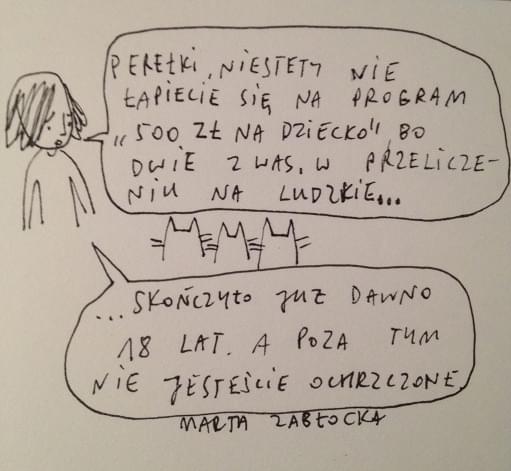 PEREŁKI, NIESTETY NIE
ŁAPIECIE SIĘ NA PROGRAM
„500 ZŁ NA DZIECKO", BO
DWIE Z WAS, W PRZELICZE-
NIU NA LUDZKIE...
...SKOŃCZYŁO JUŻ DAWNO
18 LAT. A POZA TYM
NIE JESTEŚCIE OCHRZCZONE
MARTA ZABŁOCKA